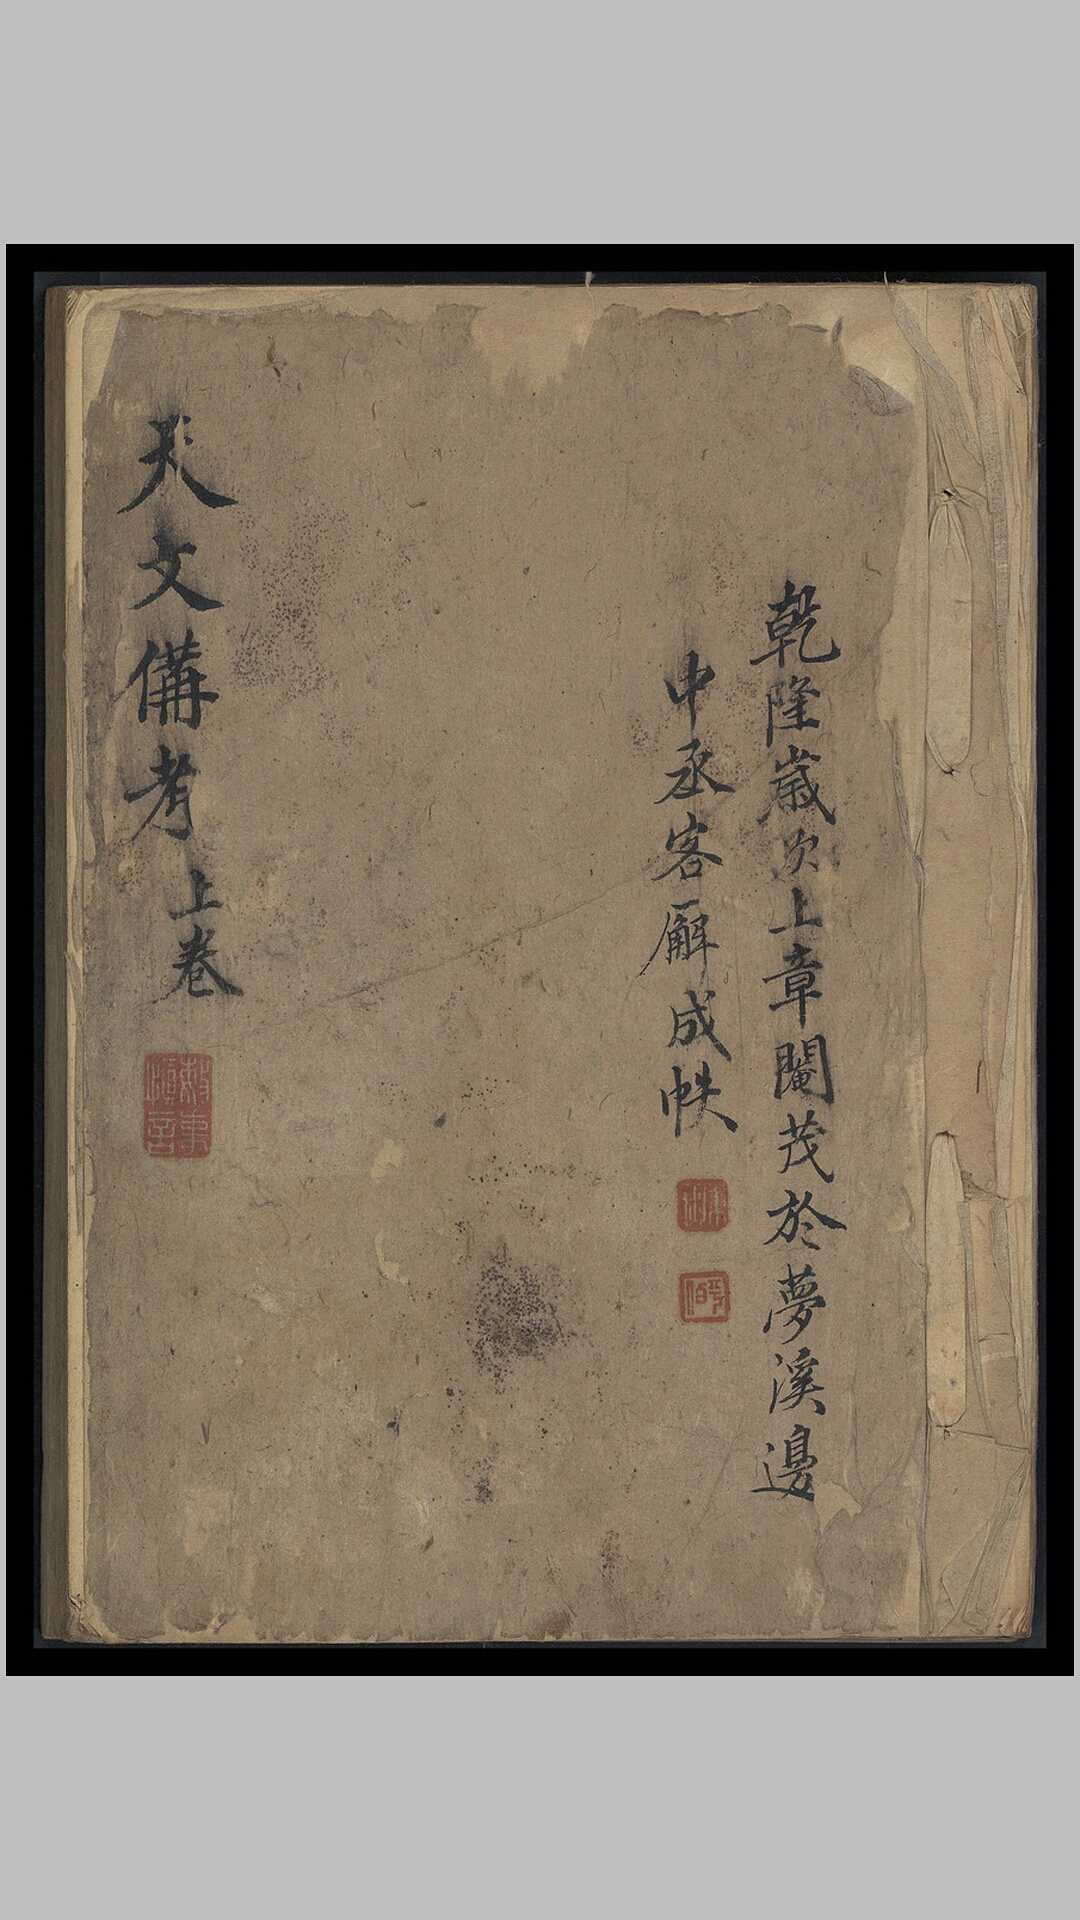 乾隆歲次上章閹茂於夢溪邊
中丞客廨成帙
天文備考 上卷